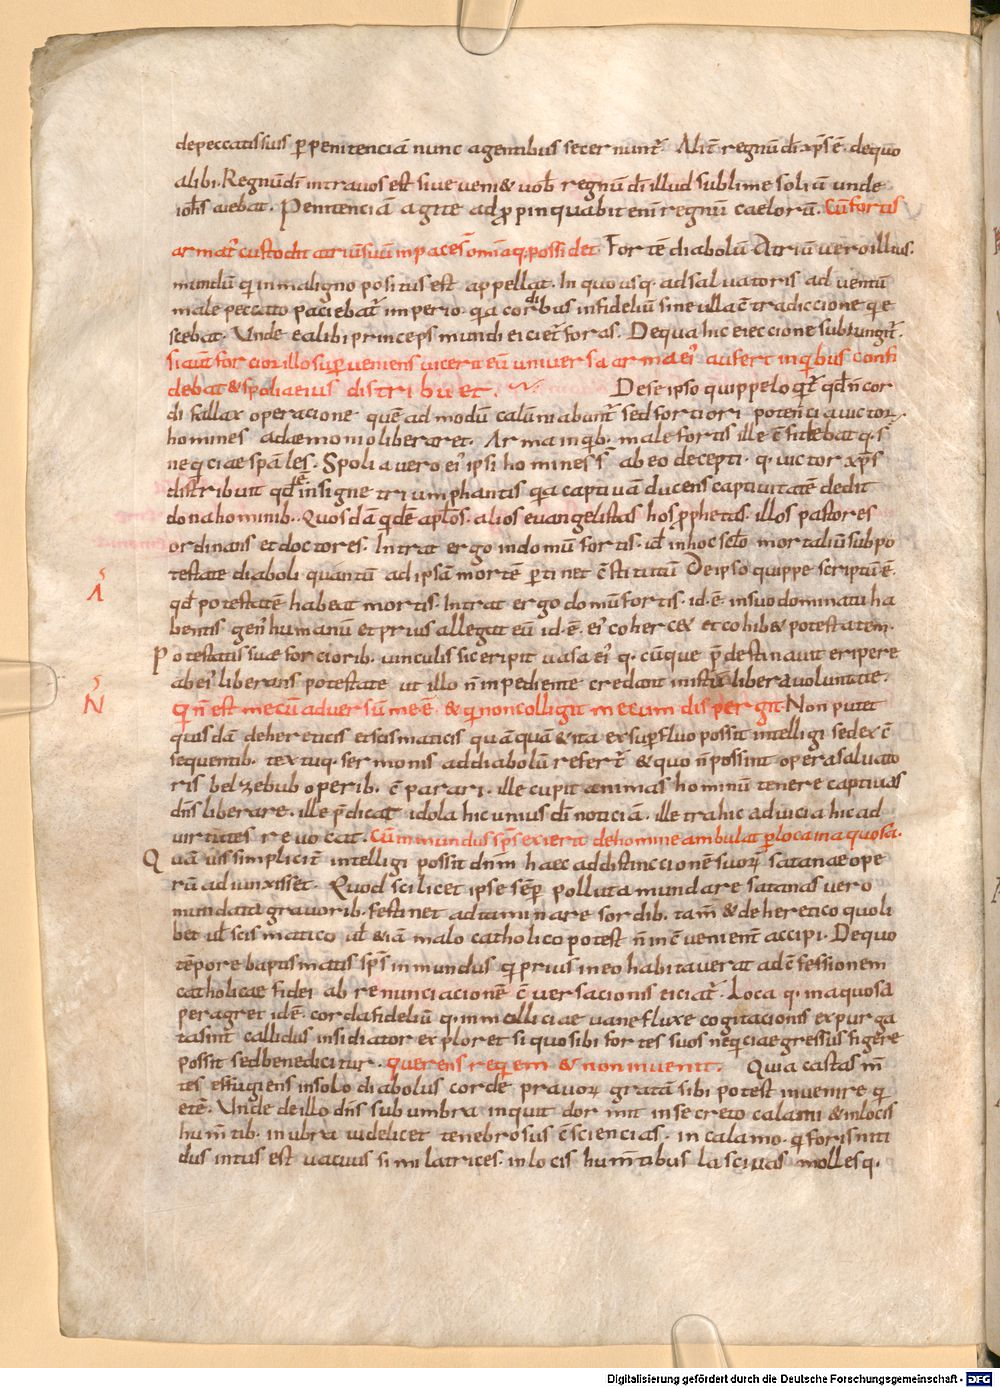 de peccatis suis p̱ penitenciā nunc agentibus secernunt̄. Alit̄ regnū dī xp̄s ē. de quo
alibi. Regnū dī intra vos est sive veni& vob̄ regnū dī illud sublime soliū unde
ioh̄s aiebat. Penitenciā agite adp̱pinquabit enī regnū caelorū. Cū fortis
armat᷒ custodit atriū suū in pace s̄ om̄ia q; possidet Fortē diabolū Atriū vero illius.
mundū q̄ in maligno positus est appellat. In quo usq; ad salvatoris adventū
male peccato paciebat᷒ imperio. q̄a cordibus infidelium sine ulla ē tradiccione q̄e
scebat. Unde & alibi princeps mundi eiciet᷒ foras. De qua hic eieccione subiungit᷒.
Si autē forcior illo superveniens vicerit eū universa arma ei᷒ aufert in q̄bus confi
debat & spolia eius distribuet.
De se ipso quippe loq̄t᷒ qd̄ n̄ con
di fallax operacione quē admodū calūniabant᷒ sed fortiori potencia victor.
homines a daemonio liberaret. Arma in q̄b. male fortis ille cōfidebat q. s̄
neq̄ciae sp̄ales. Spolia vero ei᷒ ipsi homines s̄ ab eo decepti. q. victor xp̄s
distribuit qd̄ ē insigne triumphantis q̄a captivā ducens captivitatē dedit
dona hominib. Quosdā q̄dē apl̄os. alios evangelistas hos p̱phetas. illos pastores
ordinans et doctores. Intrat ergo in domū fortis. id in hoc sclo mortaliū sub po
testate diaboli quantū ad ipsā mortē p̱tinet cōstitutū De ipso quippe scriptū ē.
qd̄ potestatē habeat mortis. Intrat ergo domū fortis. id. ē. in suo dominatu ha
bentis gen᷒ humanū et prius allegat eū id. ē. ei᷒ coherc& et cohib& potestatem.
Potestatis suae forciorib. vinculis sic eripit vasa ei᷒ q. cūque p̄destinavit eripere
ab ei᷒ liberans potestate ut illo n̄ inpediente credant in istū libera voluntate.
Λ
N
Q̄ n̄ est mecū adversū me ē. & q̄ non colligit mecum dispergit. Non putet
quisdā de hereticis et scismaticis quāquā & ita ex sup̱fluo possit intelligi sed ex c̄
sequentib. textuq. sermonis ad diabolū refert᷒ & quo n̄ possint opera salvato
ris belzebub operib. c̄parari. ille cupit animas hominū tenere captivas
dn̄s liberare. ille p̄dicat idola hic unius dī noticiā. ille trahic ad vicia hic ad
virtutes revocat. Cū inmundus sp̄s exierit de homine ambulat p̱ loca inaquosa.
Quāvis simplicit᷒ intelligi possit dn̄m haec ad distinccionē suorꝝ satanae ope
rū adiunxisset. Quod scilicet ipse semp̱ polluta mundare satanas vero
mundata gravorib. festinet adtaminare sordib. tam̄ & de heretico quoli
bet vl̄ scismatico vl̄ &iā malo catholico potest n̄ inc̄venient᷒ accipi. De quo
tēpore baptismatis sp̄s inmundus q̄ prius in eo habitaverat ad c̄fessionem
catholicae fidei abrenunciacionē c̄versacionis eiciat᷒. Loca q. inaquosa
peragret id ē. corda fideliū q. in molliciae vane fluxe cogitacionis expurga
ta sint callidus insidiator exploret si quo sibi fortes suos neq̄ciae gressus figere
possit sed benedicitur. querens req̄em & non invenit. Quia castas m̄
tes effugiens in solo diabolus corde pravorꝝ gratā sibi potest invenire q̄
etē. Unde de illo dn̄s sub umbra inquit dormit in secreto calami & in locis
hum̄tib. in vbra videlicet tenebrosus c̄sciencias. in calamo. q̄ foris niti
dus intus est vacuus simulatrices. in locis hum̄tibus lascivas mollesq.
Digitalisierung gefördert durch die Deutsche Forschungsgemeinschaft - DFG